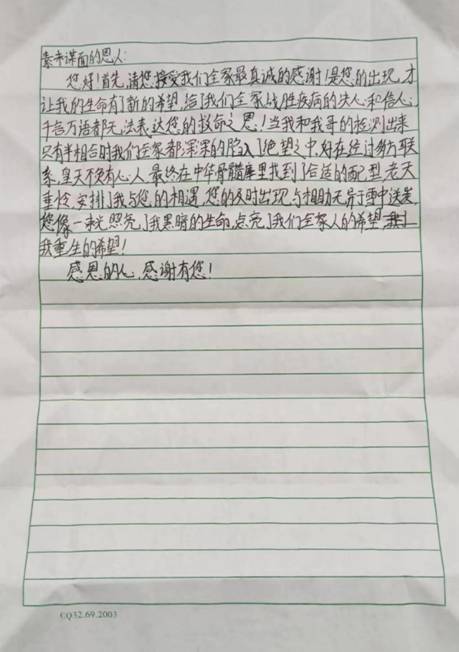 素未谋面的恩人:
您好!首先,请您接受我们全家最真诚的感谢!是您的出现,才
让我的生命有了新的希望,给了我们全家战胜疾病的决心和信心,
千言万语都无法表达您的救命之恩!当我和我哥的检测出来
只有半相合时我们全家都深深的陷入了绝望之中,好在经过多方联
系,皇天不负有心人,最终在中华骨髓库里找到了合适的配型,老天
垂怜,安排了我与您的相遇,您的及时出现与相助无异于雪中送炭,
您像一束光照亮了我黑暗的生命,点亮了我们全家人的希望
我重生的希望!
感恩的心,感谢有您!
CQ32.69.2003